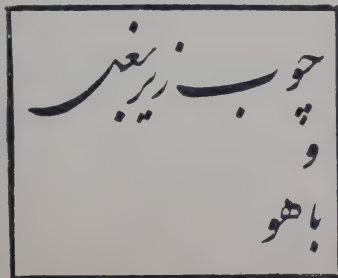 چوب زیر بغلی
و
باهو